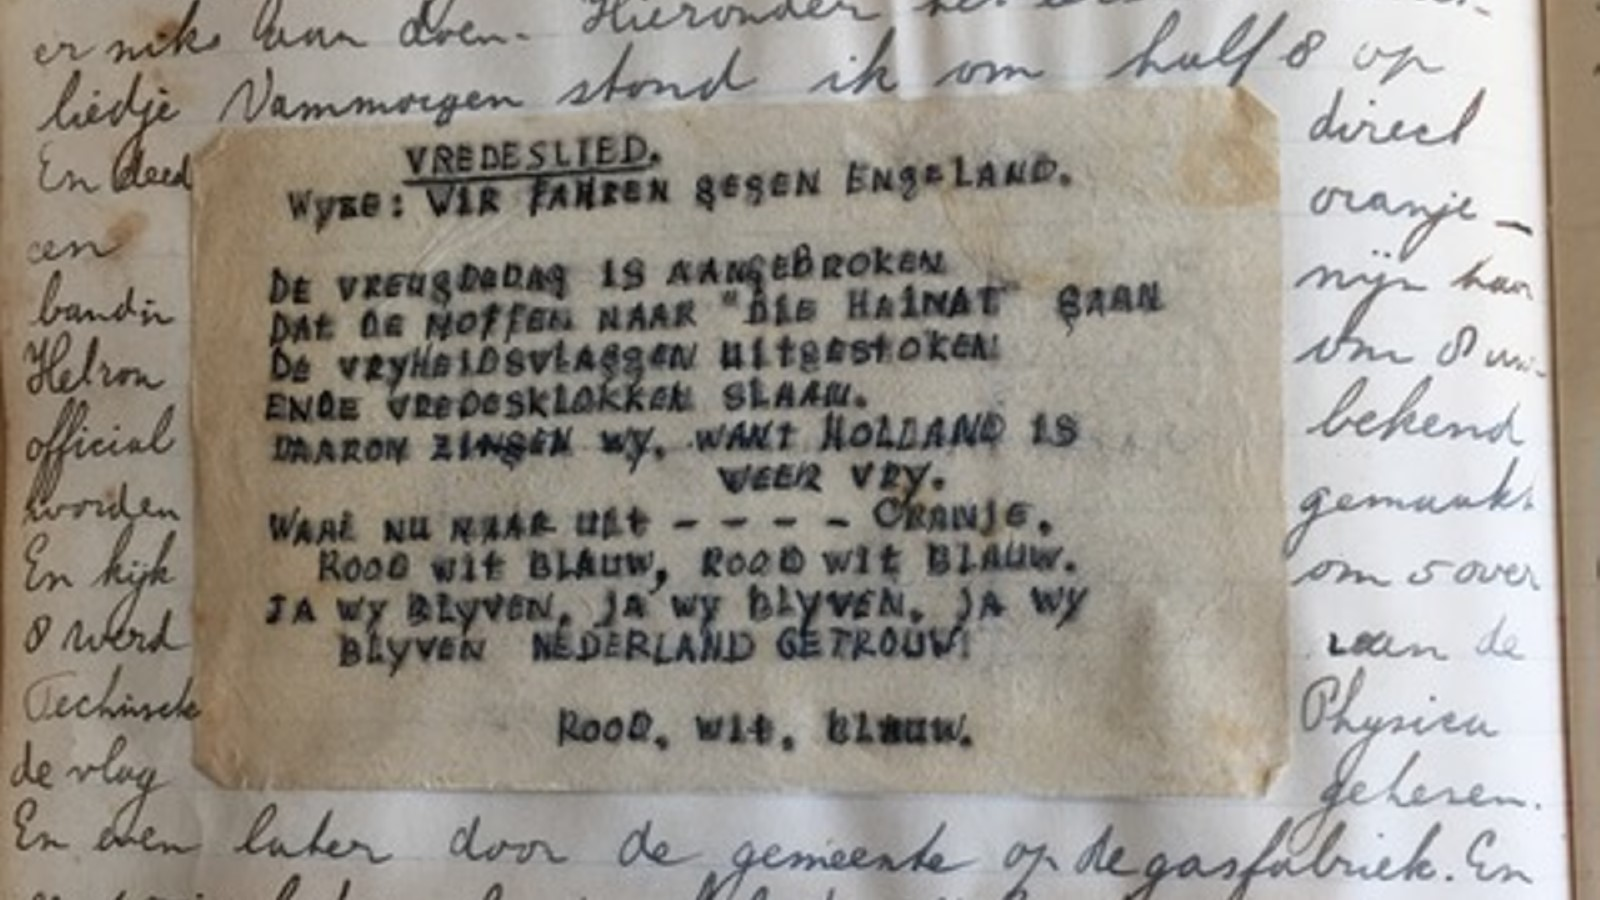 er niks aan doen. Hieronder het
liedje Vammorgen stond ik om half 8 op
En deed direct
een oranje-
bandin mijn haar
Helron om 8 uu-
official bekend
worden gemaakt.
En kijk om 5 over
8 werd van de
Technisch Physica
de vlag gehesen.
En even later door de gemeente op de gasfabriek. En
VREDESLIED.
Wyze: WIR FAHREN GEGEN ENGELAND.
DE VREUGDEDAG IS AANGEBROKEN
DAT DE MOFFEN NAAR "DIE HAIMAT" GAAN
DE VRYHEIDSVLAGGEN UITGESTOKEN
ENDE VREDESKLOKKEN SLAAN.
DAAROM ZINGEN WY, WANT HOLLAND IS
WEER VRY.
WAAI NU MAAR UIT - - - - ORANJE.
ROOD WIT BLAUW, ROOD WIT BLAUW.
JA WY BLYVEN, JA WY BLYVEN, JA WY
BLYVEN NEDERLAND GETROUW!
ROOD. WIT. BLAUW.